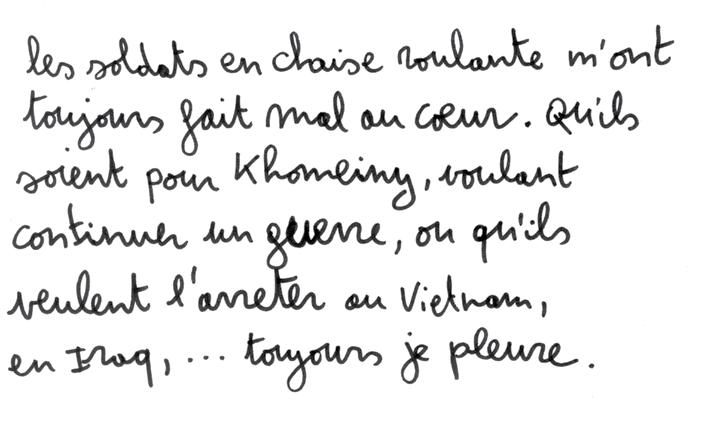 les soldats en chaise roulante m'ont
toujours fait mal au cœur. Qu'ils
soient pour Khomeiny, voulant
continuer un guerre, ou qu'ils
veulent l'arreter au Vietnam,
en Iraq, ... toujours je pleure.